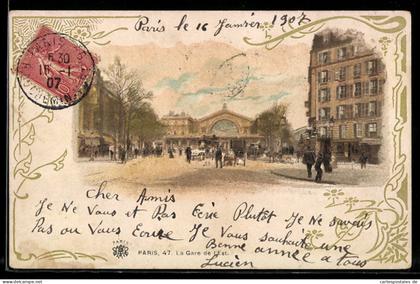 Paris le 16 Janvier 1907
PARIS
6 30
16 - 1
07
Cher Amis
Je Ne Vous et Pas Ecrie Plutôt Je ne savais
Pas ou Vous Ecrire Je Vous souhaite une
Bonne année a tous
Lucien
PARIS
PARIS, 47. La Gare de l'Est.